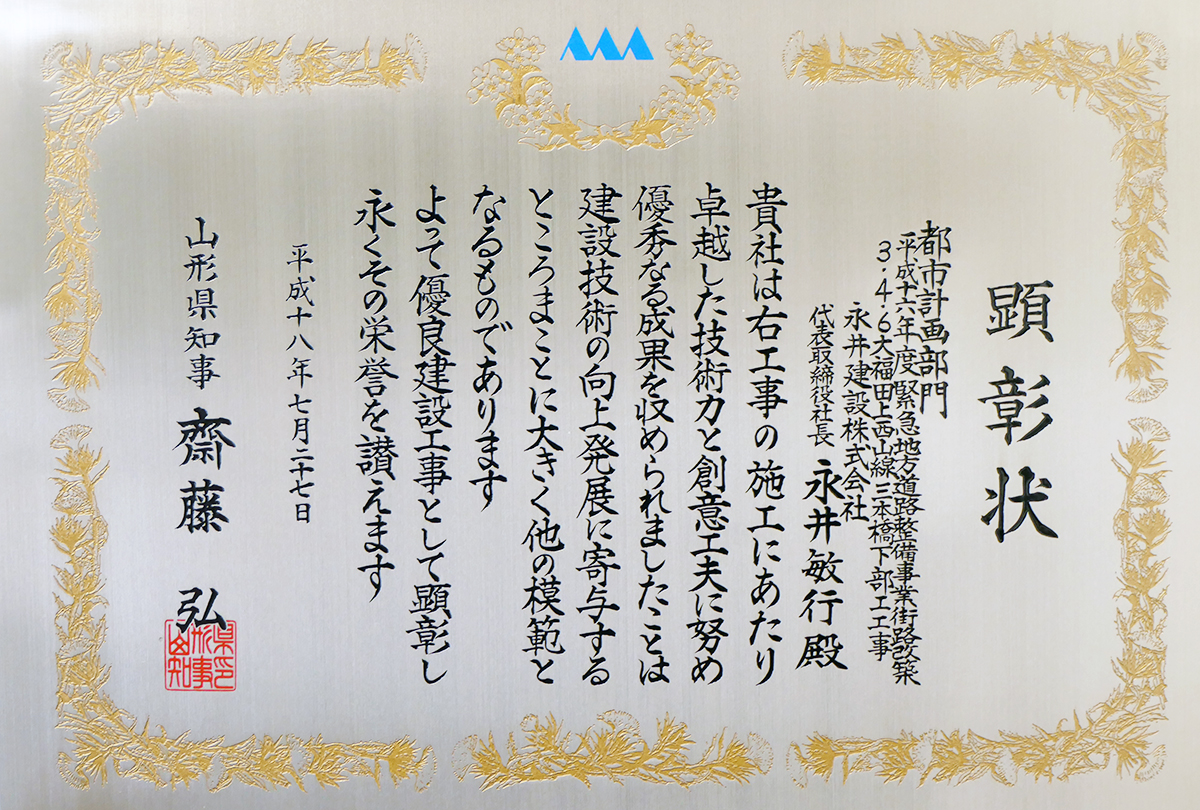 顕彰状
都市計画部門
平成十六年度緊急地方道路整備事業街路改築
3・4・6大福田上西山線三本橋下部工工事
永井建設株式会社
代表取締役社長 永井敏行殿
貴社は右工事の施工にあたり
卓越した技術力と創意工夫に努め
優秀なる成果を収められましたことは
建設技術の向上発展に寄与する
ところまことに大きく他の模範と
なるものであります
よって優良建設工事として顕彰し
永くその栄誉を讃えます
平成十八年七月二十七日
山形県知事 齋藤弘
山形県知事印